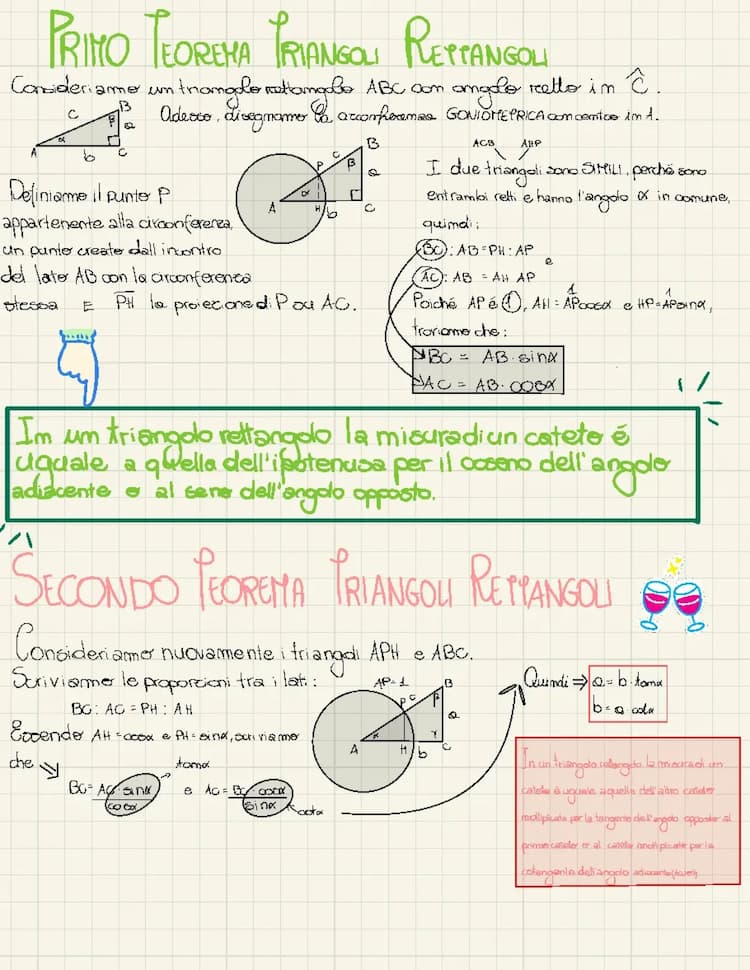 PRIMO TEOREMA TRIANGOLI RETTANGOLI
Consideriamo un triangolo rettangolo ABC con angolo retto in Ĉ.
Adesso, disegnamo la circonferenza GONIOMETRICA con centro in A.
c
B
β
a
α
A
b
C
Definiamo il punto P
appartenente alla circonferenza,
un punto creato dall'incontro
del lato AB con la circonferenza
stessa E PH la proiezione di P su AC.
B
c
β
P
a
α
A
H
b
C
ACB AHP
I due triangoli sono SIMILI, perché sono
entrambi retti e hanno l'angolo α in comune,
quindi:
BC : AB = PH : AP
e
AC : AB = AH AP
1 1
Poiché AP è 1, AH = APcosα e HP = APsinα,
troviamo che:
BC = AB · sinα
AC = AB · cosα
In un triangolo rettangolo la misura di un cateto é
uguale a quella dell'ipotenusa per il coseno dell'angolo
adiacente o al seno dell'angolo opposto.
SECONDO TEOREMA TRIANGOLI RETTANGOLI
Consideriamo nuovamente i triangoli APH e ABC.
Scriviamo le proporzioni tra i lati:
BC : AC = PH : AH
Essendo AH = cosα e PH = sinα, scriviamo
che
BC = AC · sinα
cosα
tanα
e AC = BC · cosα
sinα
cotα
AP=1
B
P
c
β
a
α
γ
A
H
b
C
Quindi ⇒ a = b · tanα
b = a · cotα
In un triangolo rettangolo la misura di un
cateto è uguale a quella dell'altro cateto
moltiplicata per la tangente dell'angolo opposto al
primo cateto or al cateto moltiplicato per la
cotangente dell'angolo adiacente